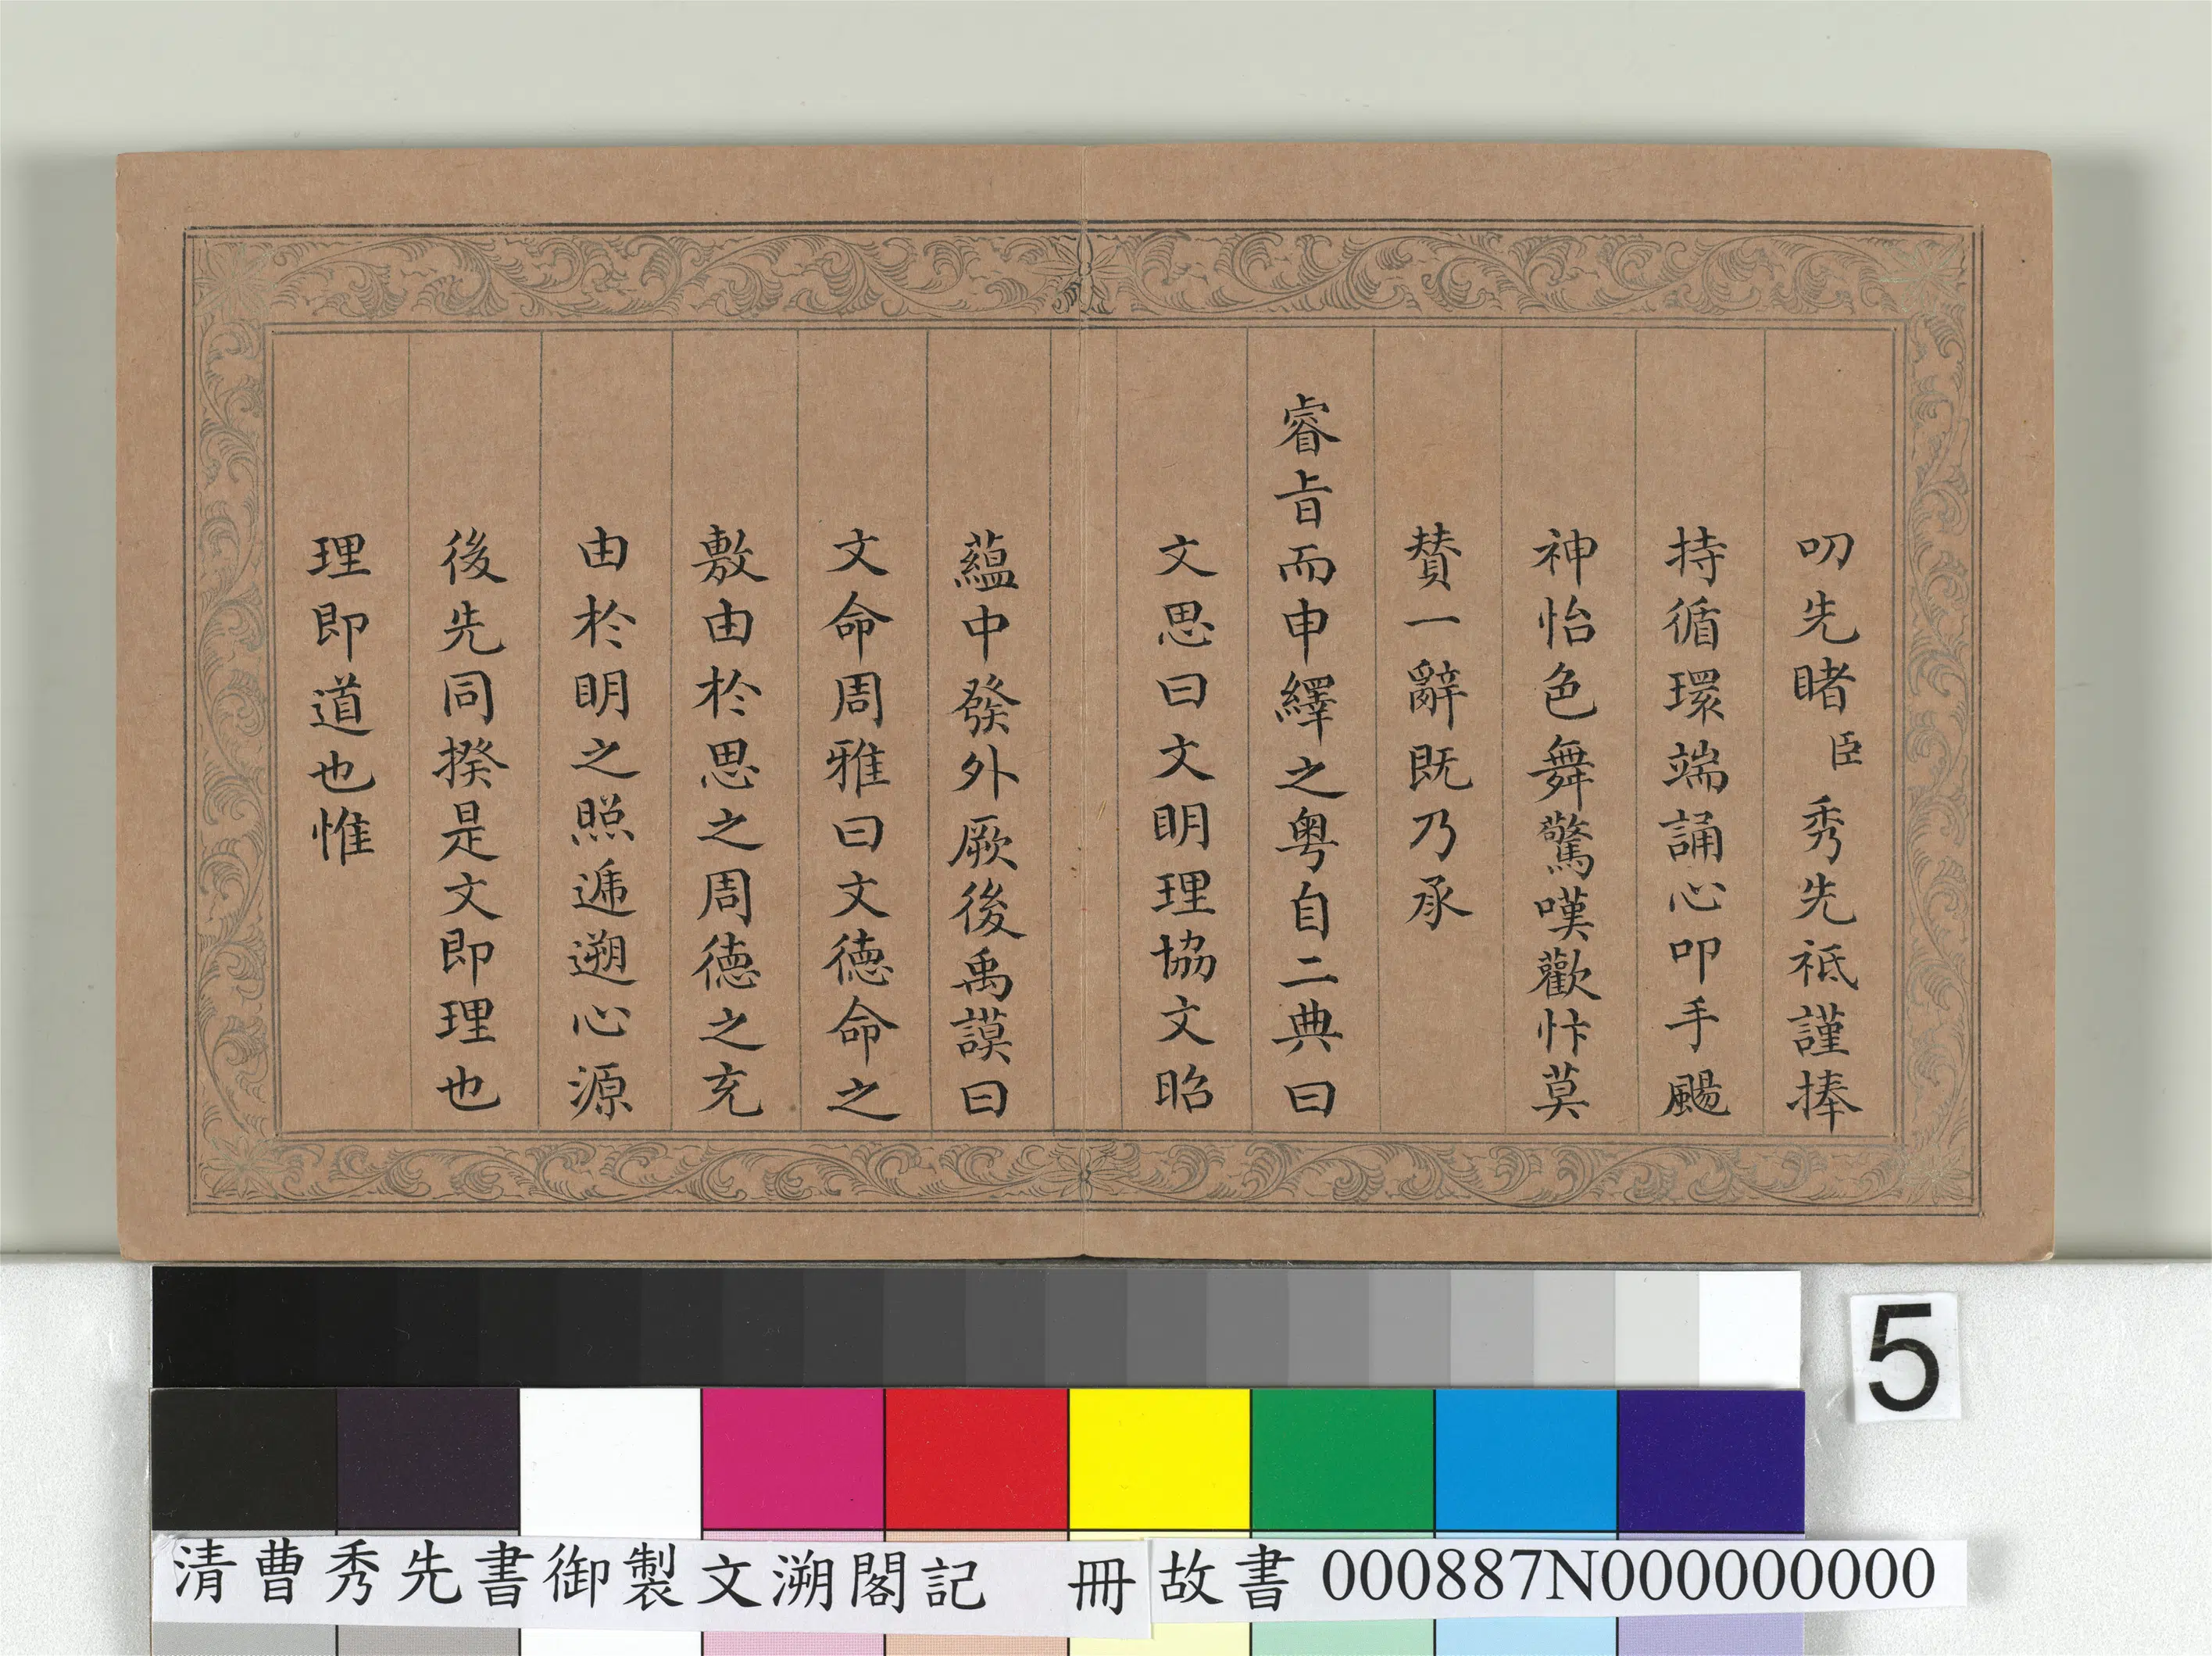 叨先睹臣秀先祗謹捧
持循環端誦心叩手颺
神怡色舞驚嘆歡忭莫
賛一辭既乃承
睿旨而申繹之粤自二典曰
文思曰文明理協文昭
藴中發外厥後禹謨曰
文命周雅曰文德命之
敷由於思之周德之充
由於明之照遞遡心源
後先同揆是文即理也
理即道也惟
5
清曹秀先書御製文溯閣記　冊故書000887N000000000